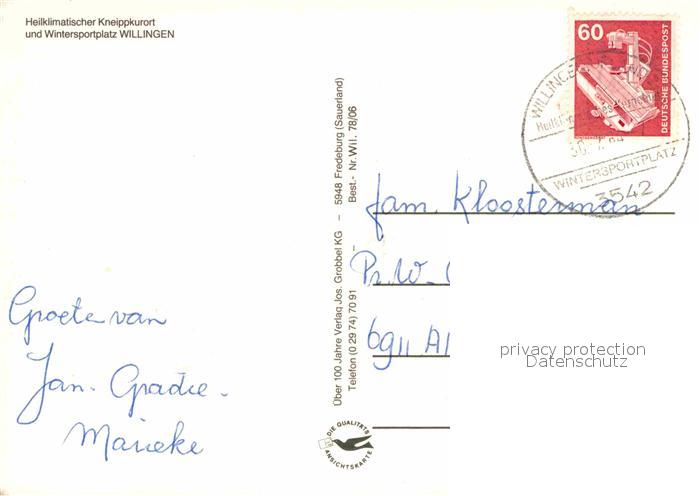 Heilklimatischer Kneippkurort
und Wintersportplatz WILLINGEN
60
DEUTSCHE BUNDESPOST
WILLINGEN
WINTERSPORTPLATZ
3542
Über 100 Jahre Verlag Jos. Grobbel KG – 5948 Fredeburg (Sauerland)
Telefon (0 29 74) 70 91 – Best.- Nr. Wil. 78/06
DIE QUALITÄTS
ANSICHTSKARTE
fam. Kloosterman
Pr. W
6911 AI
privacy protection
Datenschutz
Groeten van
Jan. Gradie.
Marieke